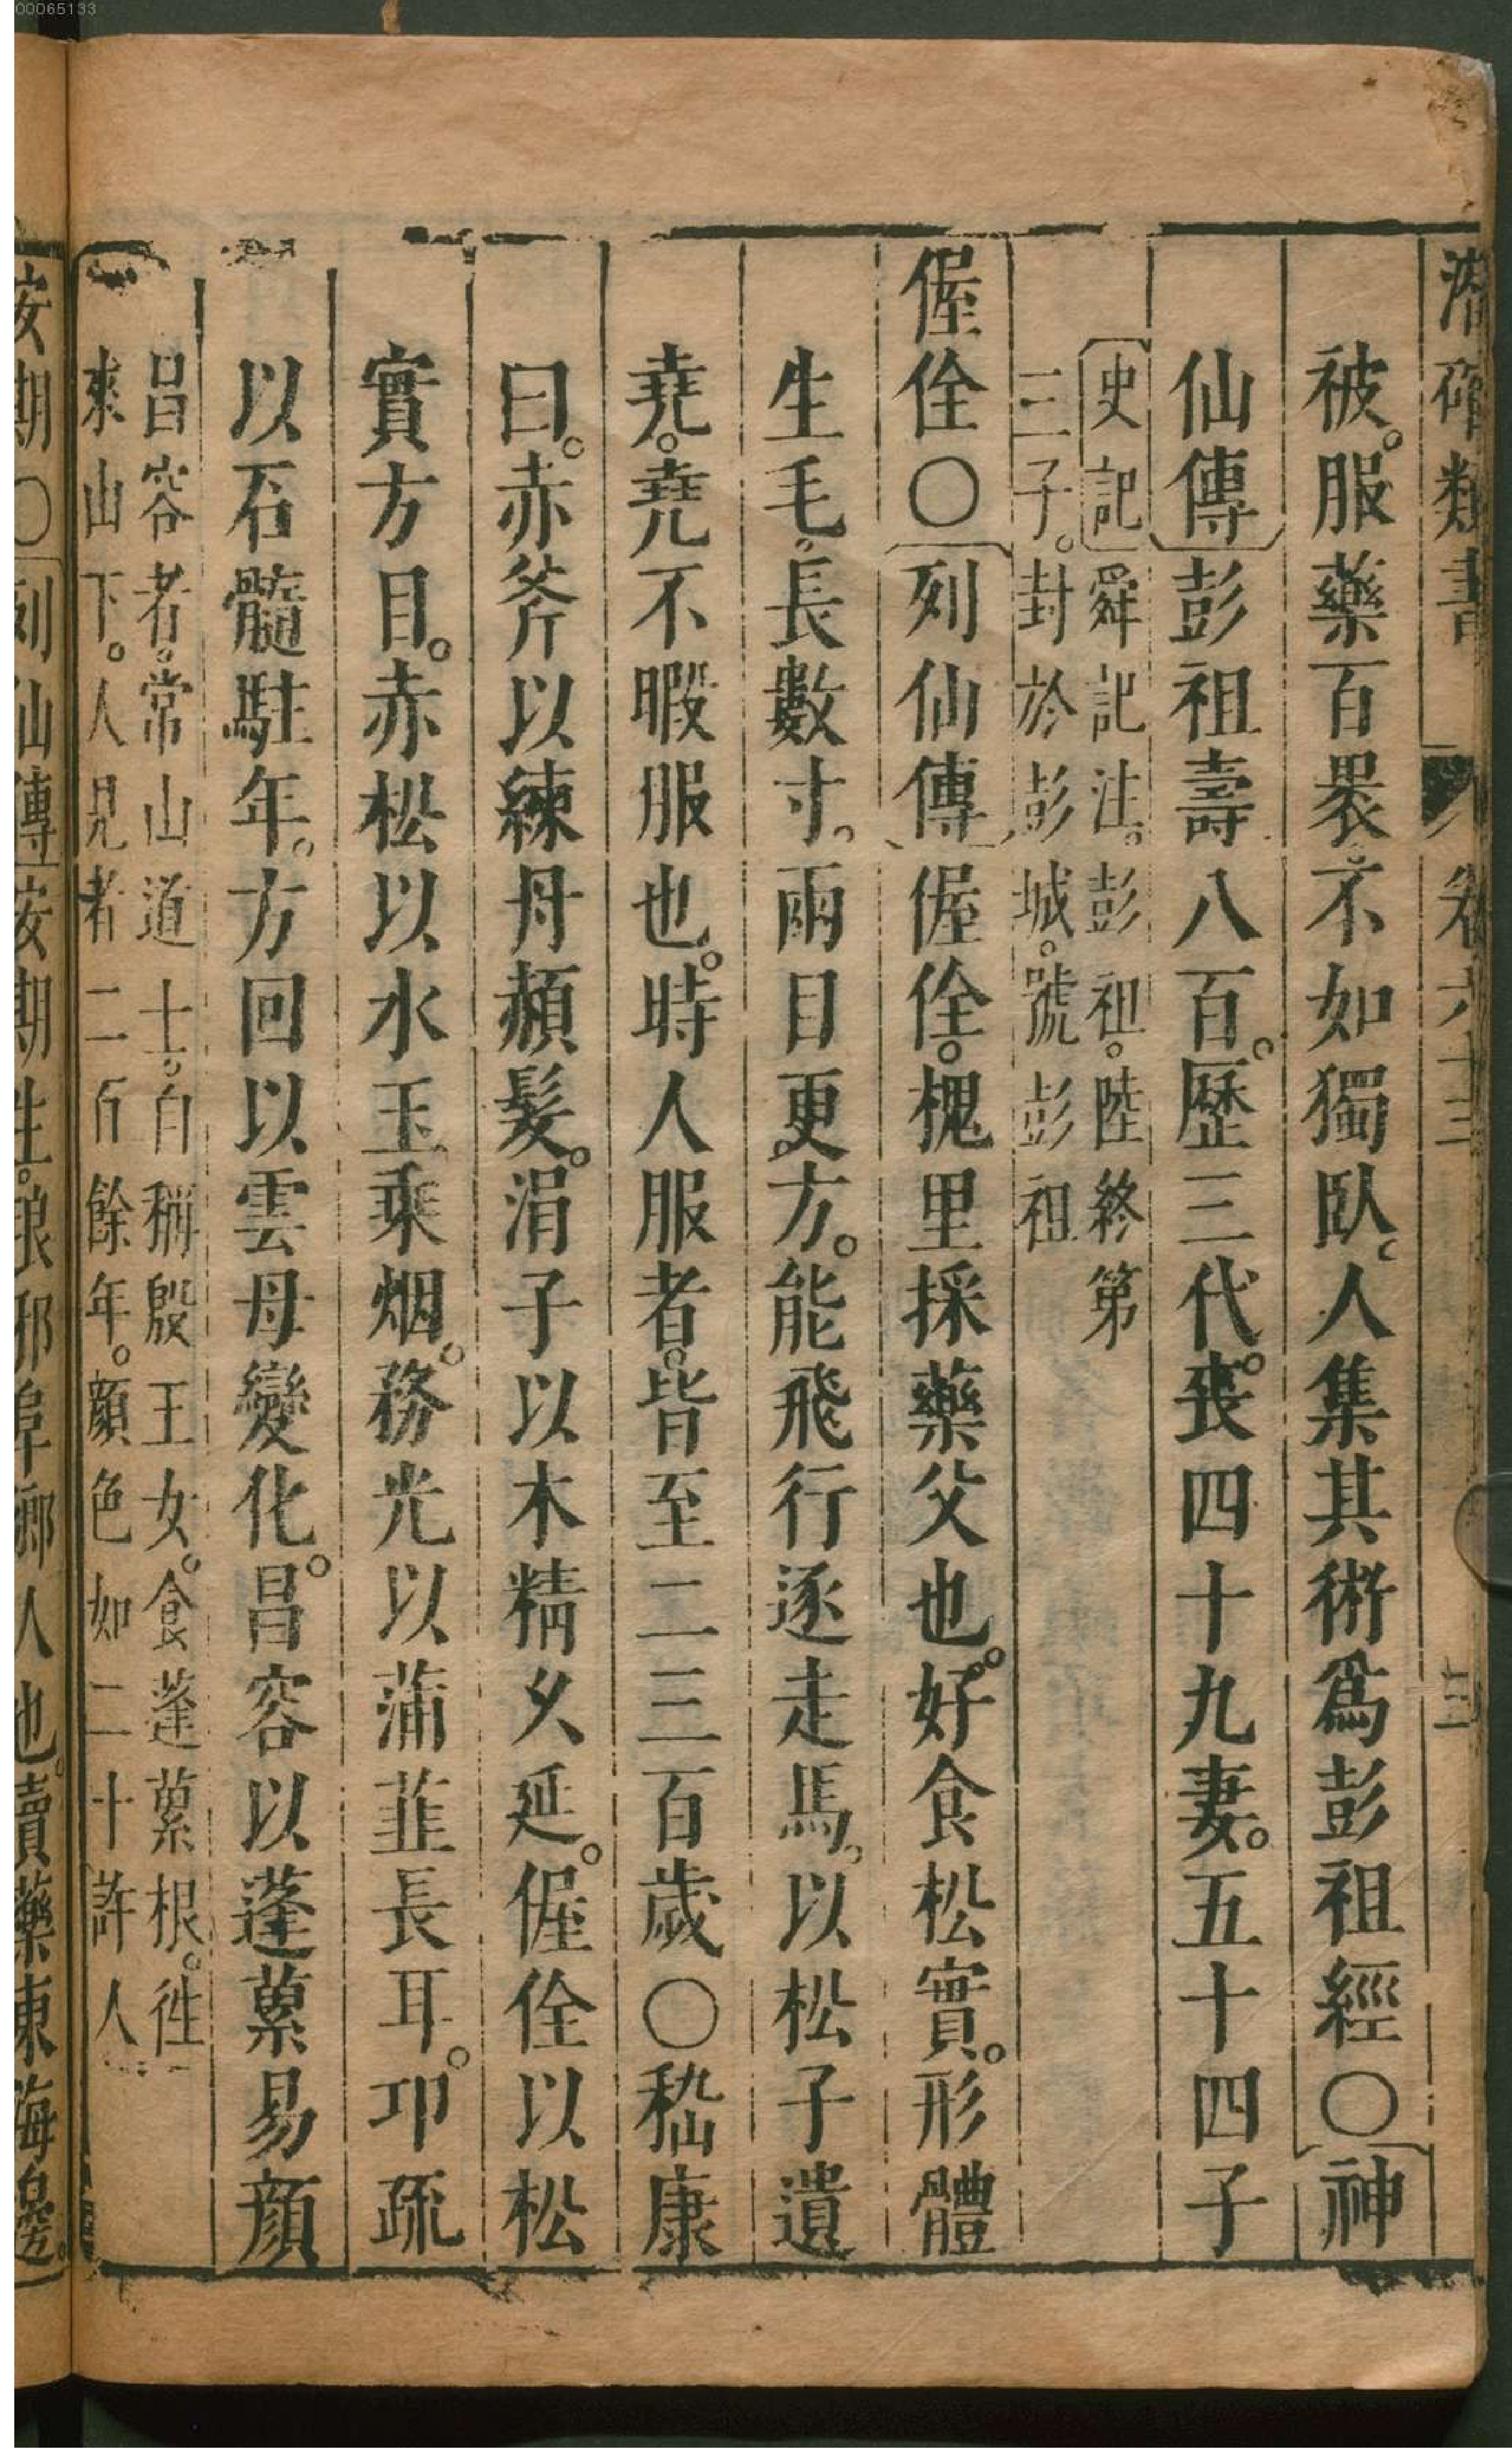 00065133
潛確類書 卷六十三 三
被。服藥百裹。不如獨臥。人集其術爲彭祖經○神
仙傳彭祖壽八百。歷三代。喪四十九妻。五十四子
史記舜記注。彭祖。陸終第
三子。封於彭城。號彭祖
偓佺○列仙傳偓佺。槐里採藥父也。好食松實。形體
生毛。長數寸。兩目更方。能飛行逐走馬。以松子遺
堯。堯不暇服也。時人服者。皆至二三百歲○嵇康
曰。赤斧以練丹頳髮。涓子以木精久延。偓佺以松
實方目。赤松以水玉乘烟。務光以蒲韮長耳。卭疏
以石髓駐年。方回以雲母變化。昌容以蓬蔂易顏
昌容者。常山道士。自稱殷王女。食蓬蔂根。徃
來山下。人見者二百餘年。顏色如二十許人
安期○列仙傳安期生。琅邪阜鄉人也。賣藥東海邊。